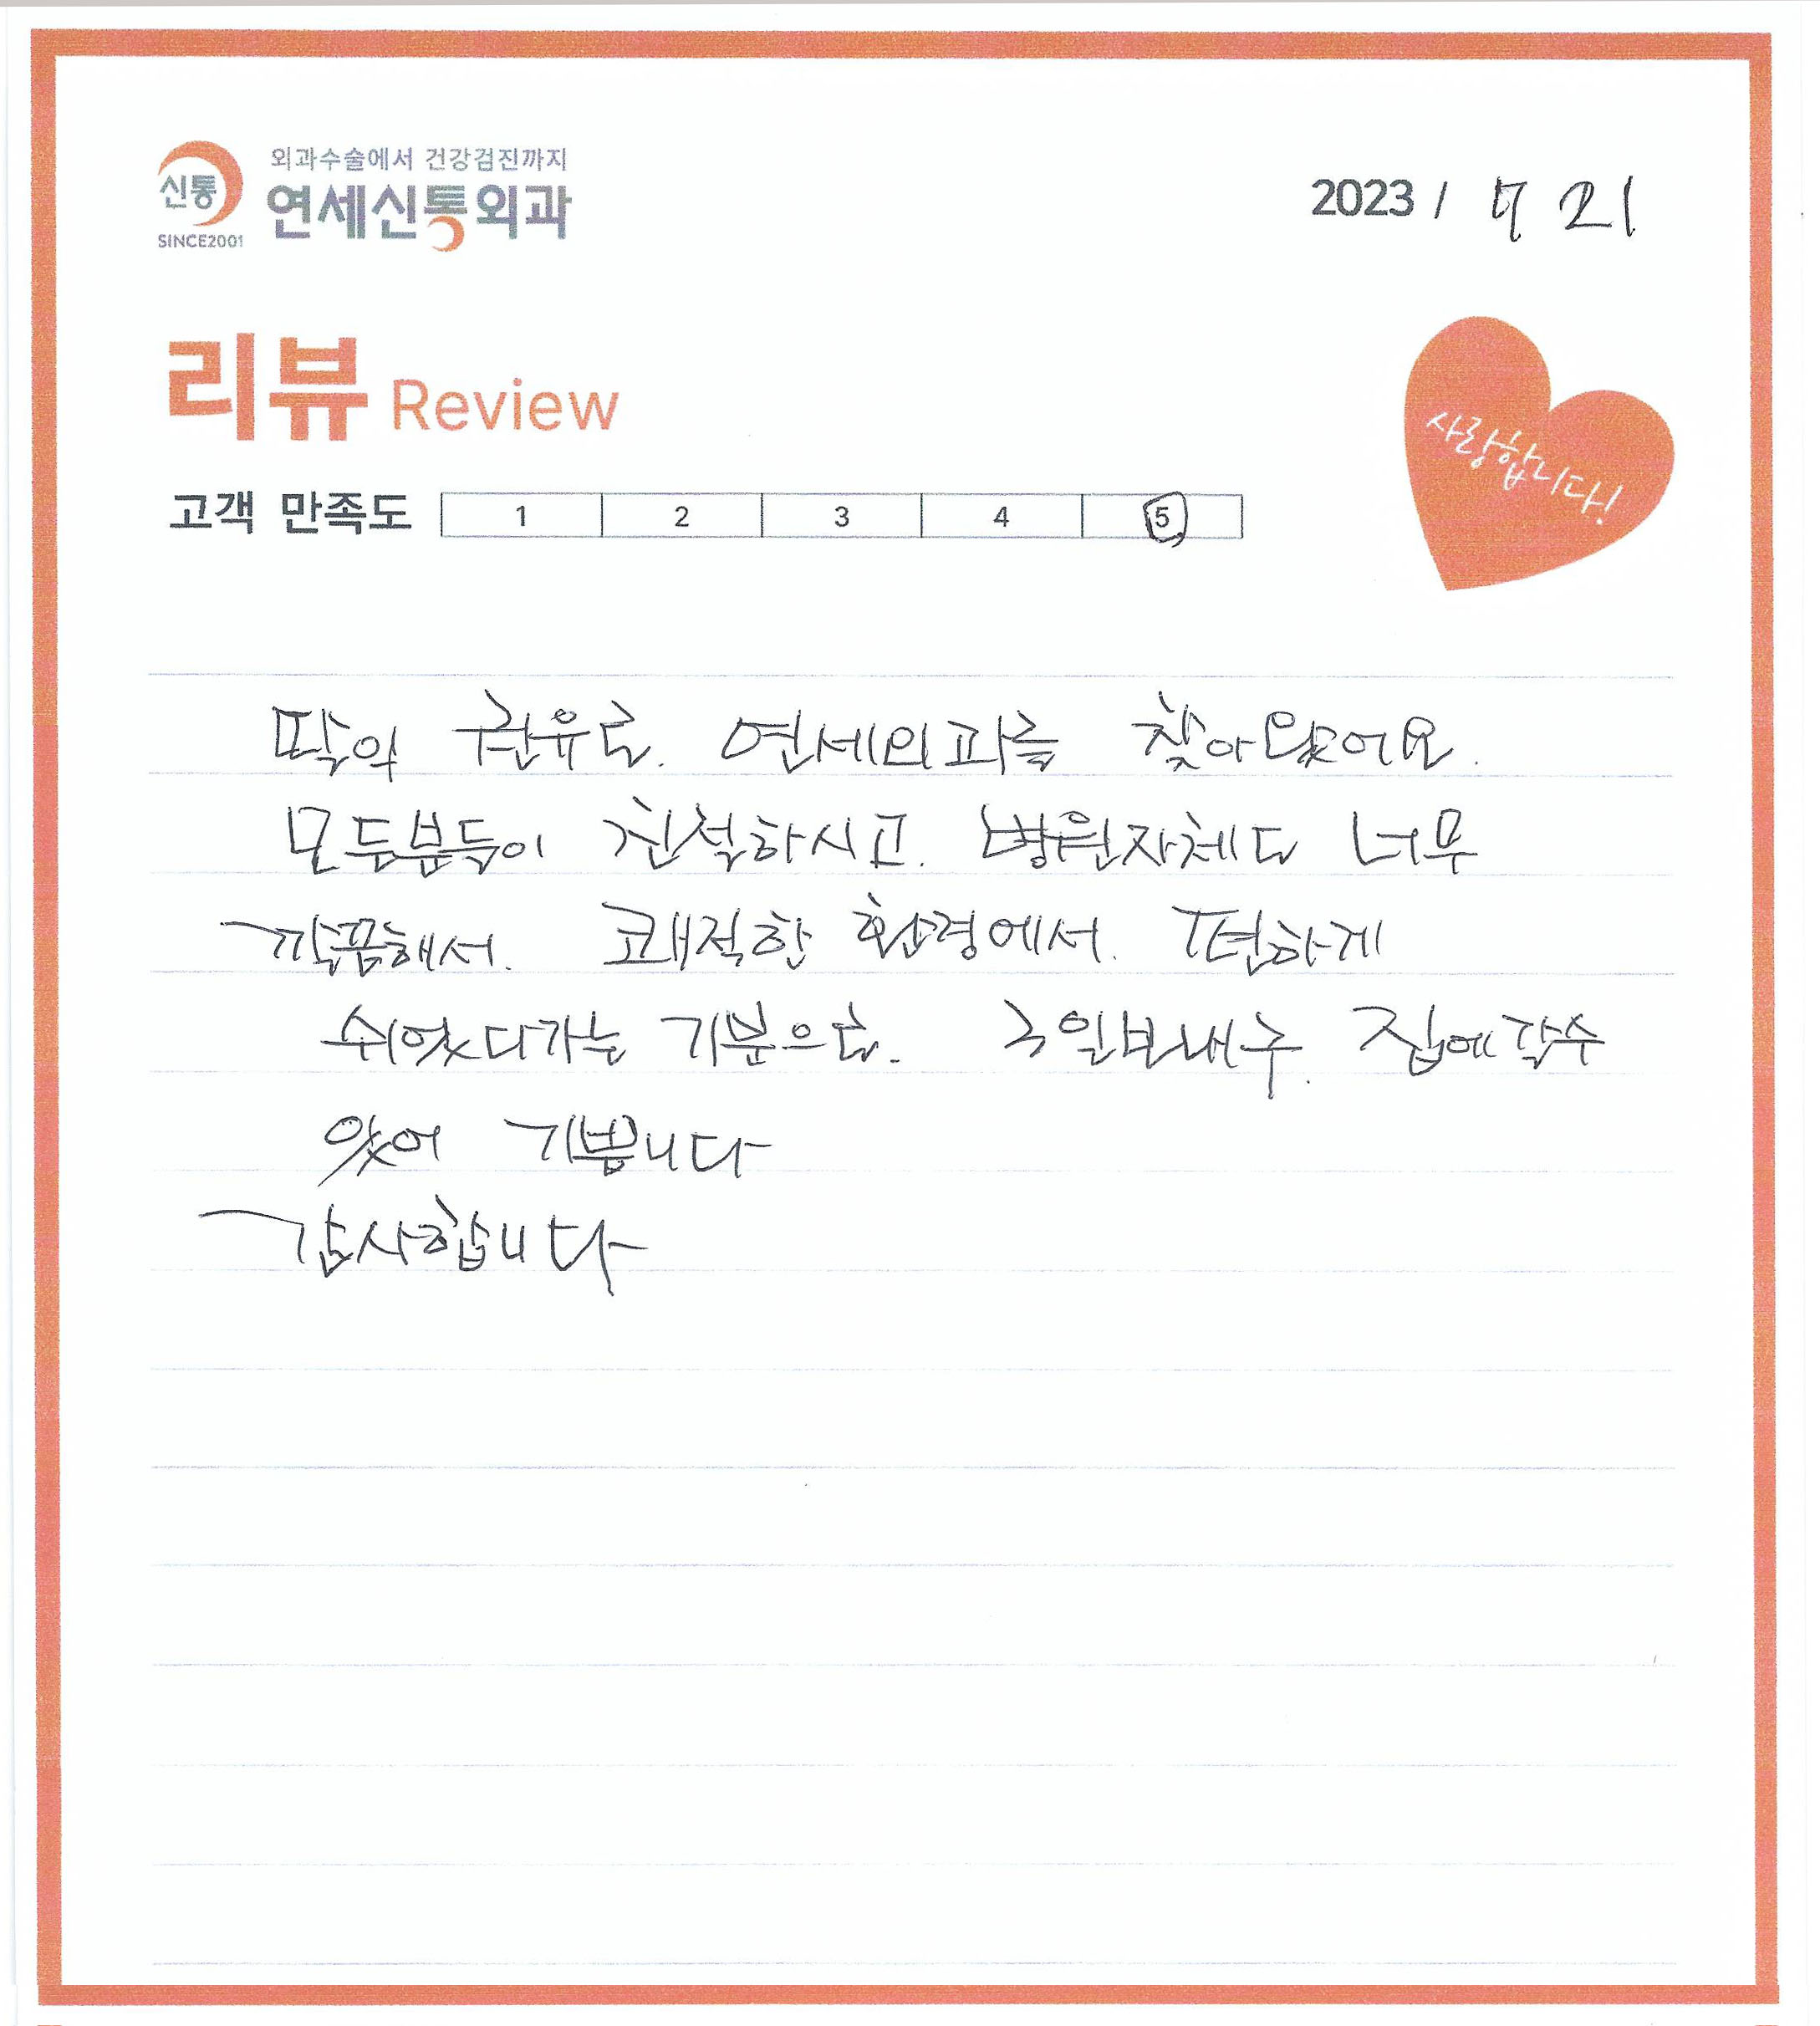 외과수술에서 건강검진까지
신통 연세신통외과
SINCE2001
2023 / 7 21
리뷰 Review
사랑합니다!
고객 만족도 1 2 3 4 5
딸의 권유로. 연세외과를 찾아왔어요.
모두분들이 친절하시고. 병원자체도 너무
깔끔해서. 쾌적한 환경에서. 편하게
쉬였다가는 기분으로. 3일보내구. 집에갈수
있어 기쁩니다
감사합니다